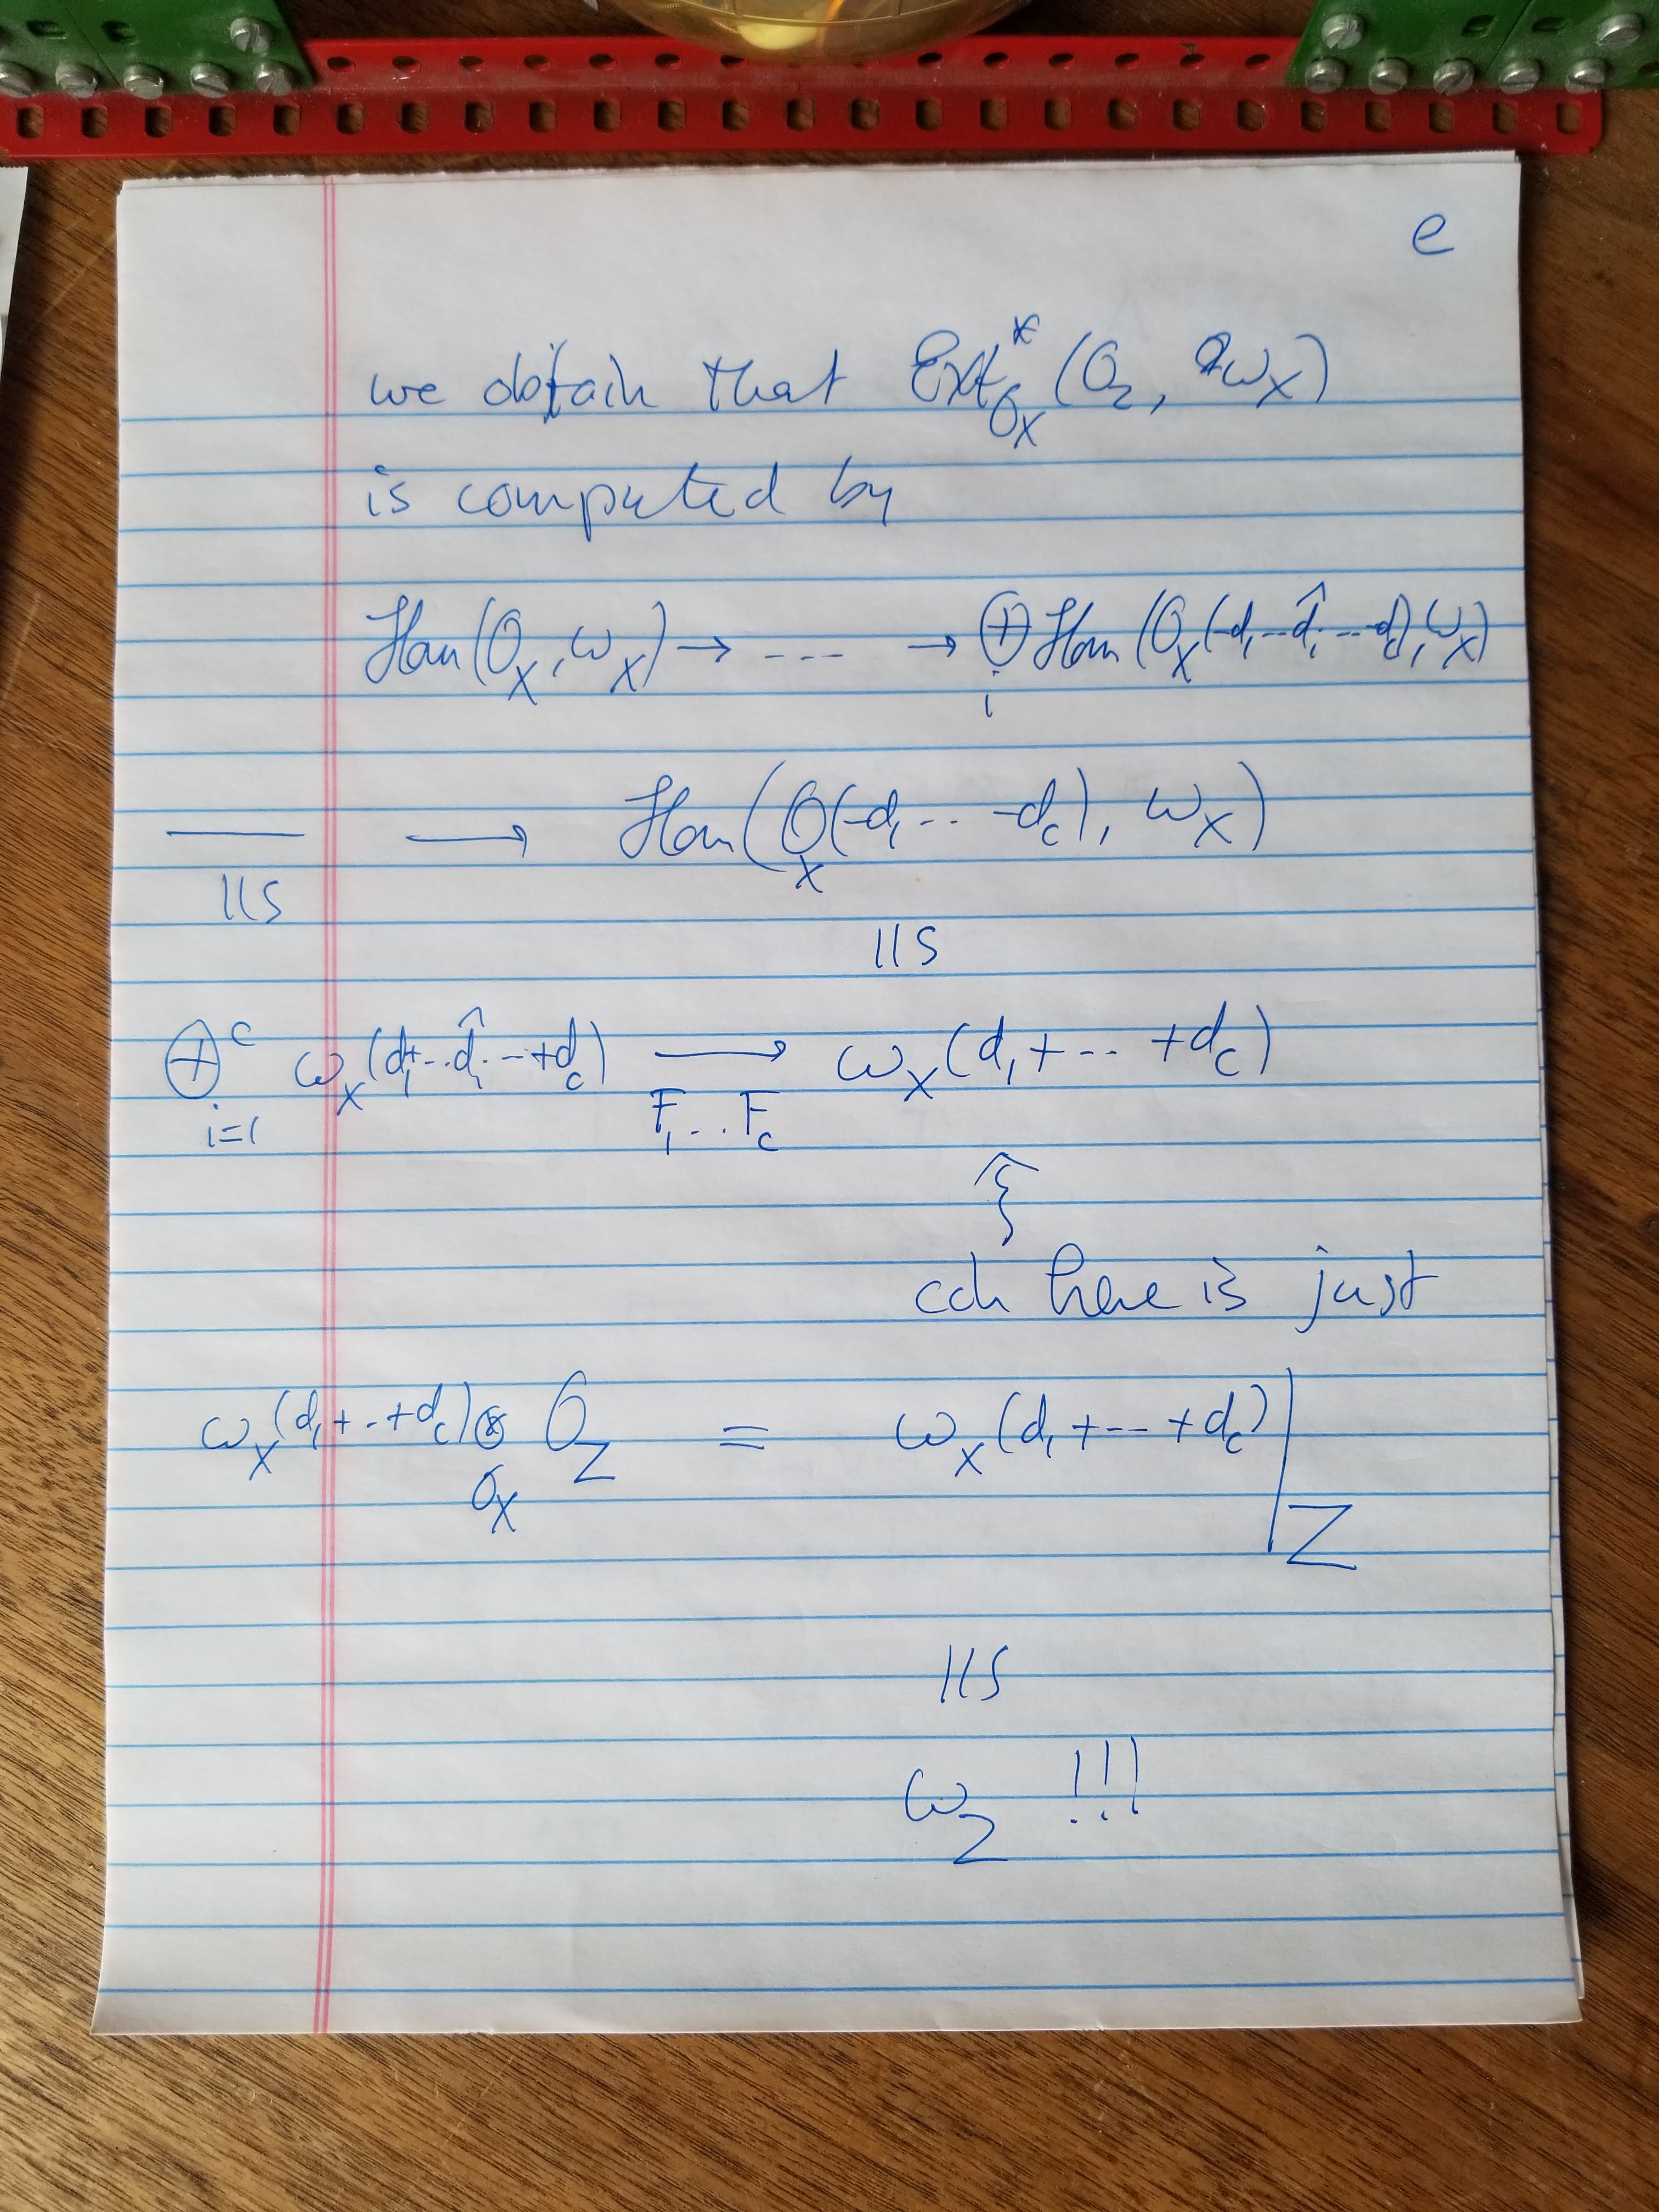 e
we obtain that Ext^*_{O_X}(O_Z, ω_X)
is computed by
Hom(O_X, ω_X) → --- → ⊕_i Hom(O_X(-d_1...d̂_i...-d_c), ω_X)
—— → Hom(O_X(-d_1...-d_c), ω_X)
||S
||S
⊕^c_{i=1} ω_X(d_1+..d̂_i..+d_c) → ω_X(d_1+...+d_c)
F_1...F_c
coh here is just
ω_X(d_1+..+d_c) ⊗_{O_X} O_Z = ω_X(d_1+...+d_c)|_Z
||S
ω_Z !!!